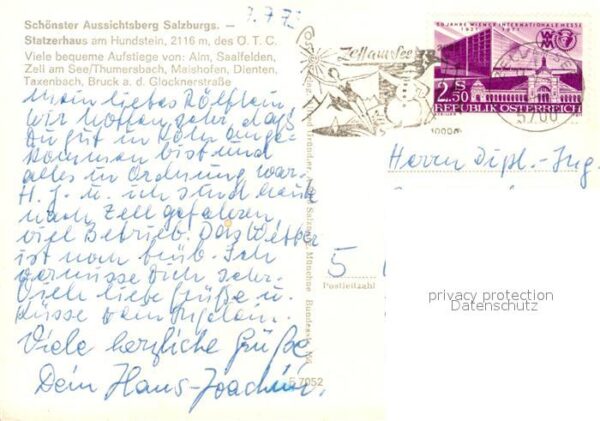 Schönster Aussichtsberg Salzburgs. —
Statzerhaus am Hundstein, 2116 m, des Ö. T. C.
Viele bequeme Aufstiege von: Alm, Saalfelden,
Zell am See/Thumersbach, Maishofen, Dienten,
Taxenbach, Bruck a. d. Glocknerstraße
Mein liebes
wir hoffen sehr, daß
Du gut in Köln ange-
kommen bist und
alles in Ordnung war.
H. J. u. ich sind heute
nach Zell gefahren
viel Betrieb. Das Wetter
ist noch trüb. Ich
vermisse Dich sehr.
Viele liebe Grüße u.
Küsse
Viele herzliche Grüße
Dein Hans-Joachim.
Zell am See
50 JAHRE WIENER INTERNATIONALE MESSE
1921 1971
2.50
S
REPUBLIK ÖSTERREICH
5700
Herrn Dipl.-Ing.
5
Postleitzahl
5 7052
privacy protection
Datenschutz